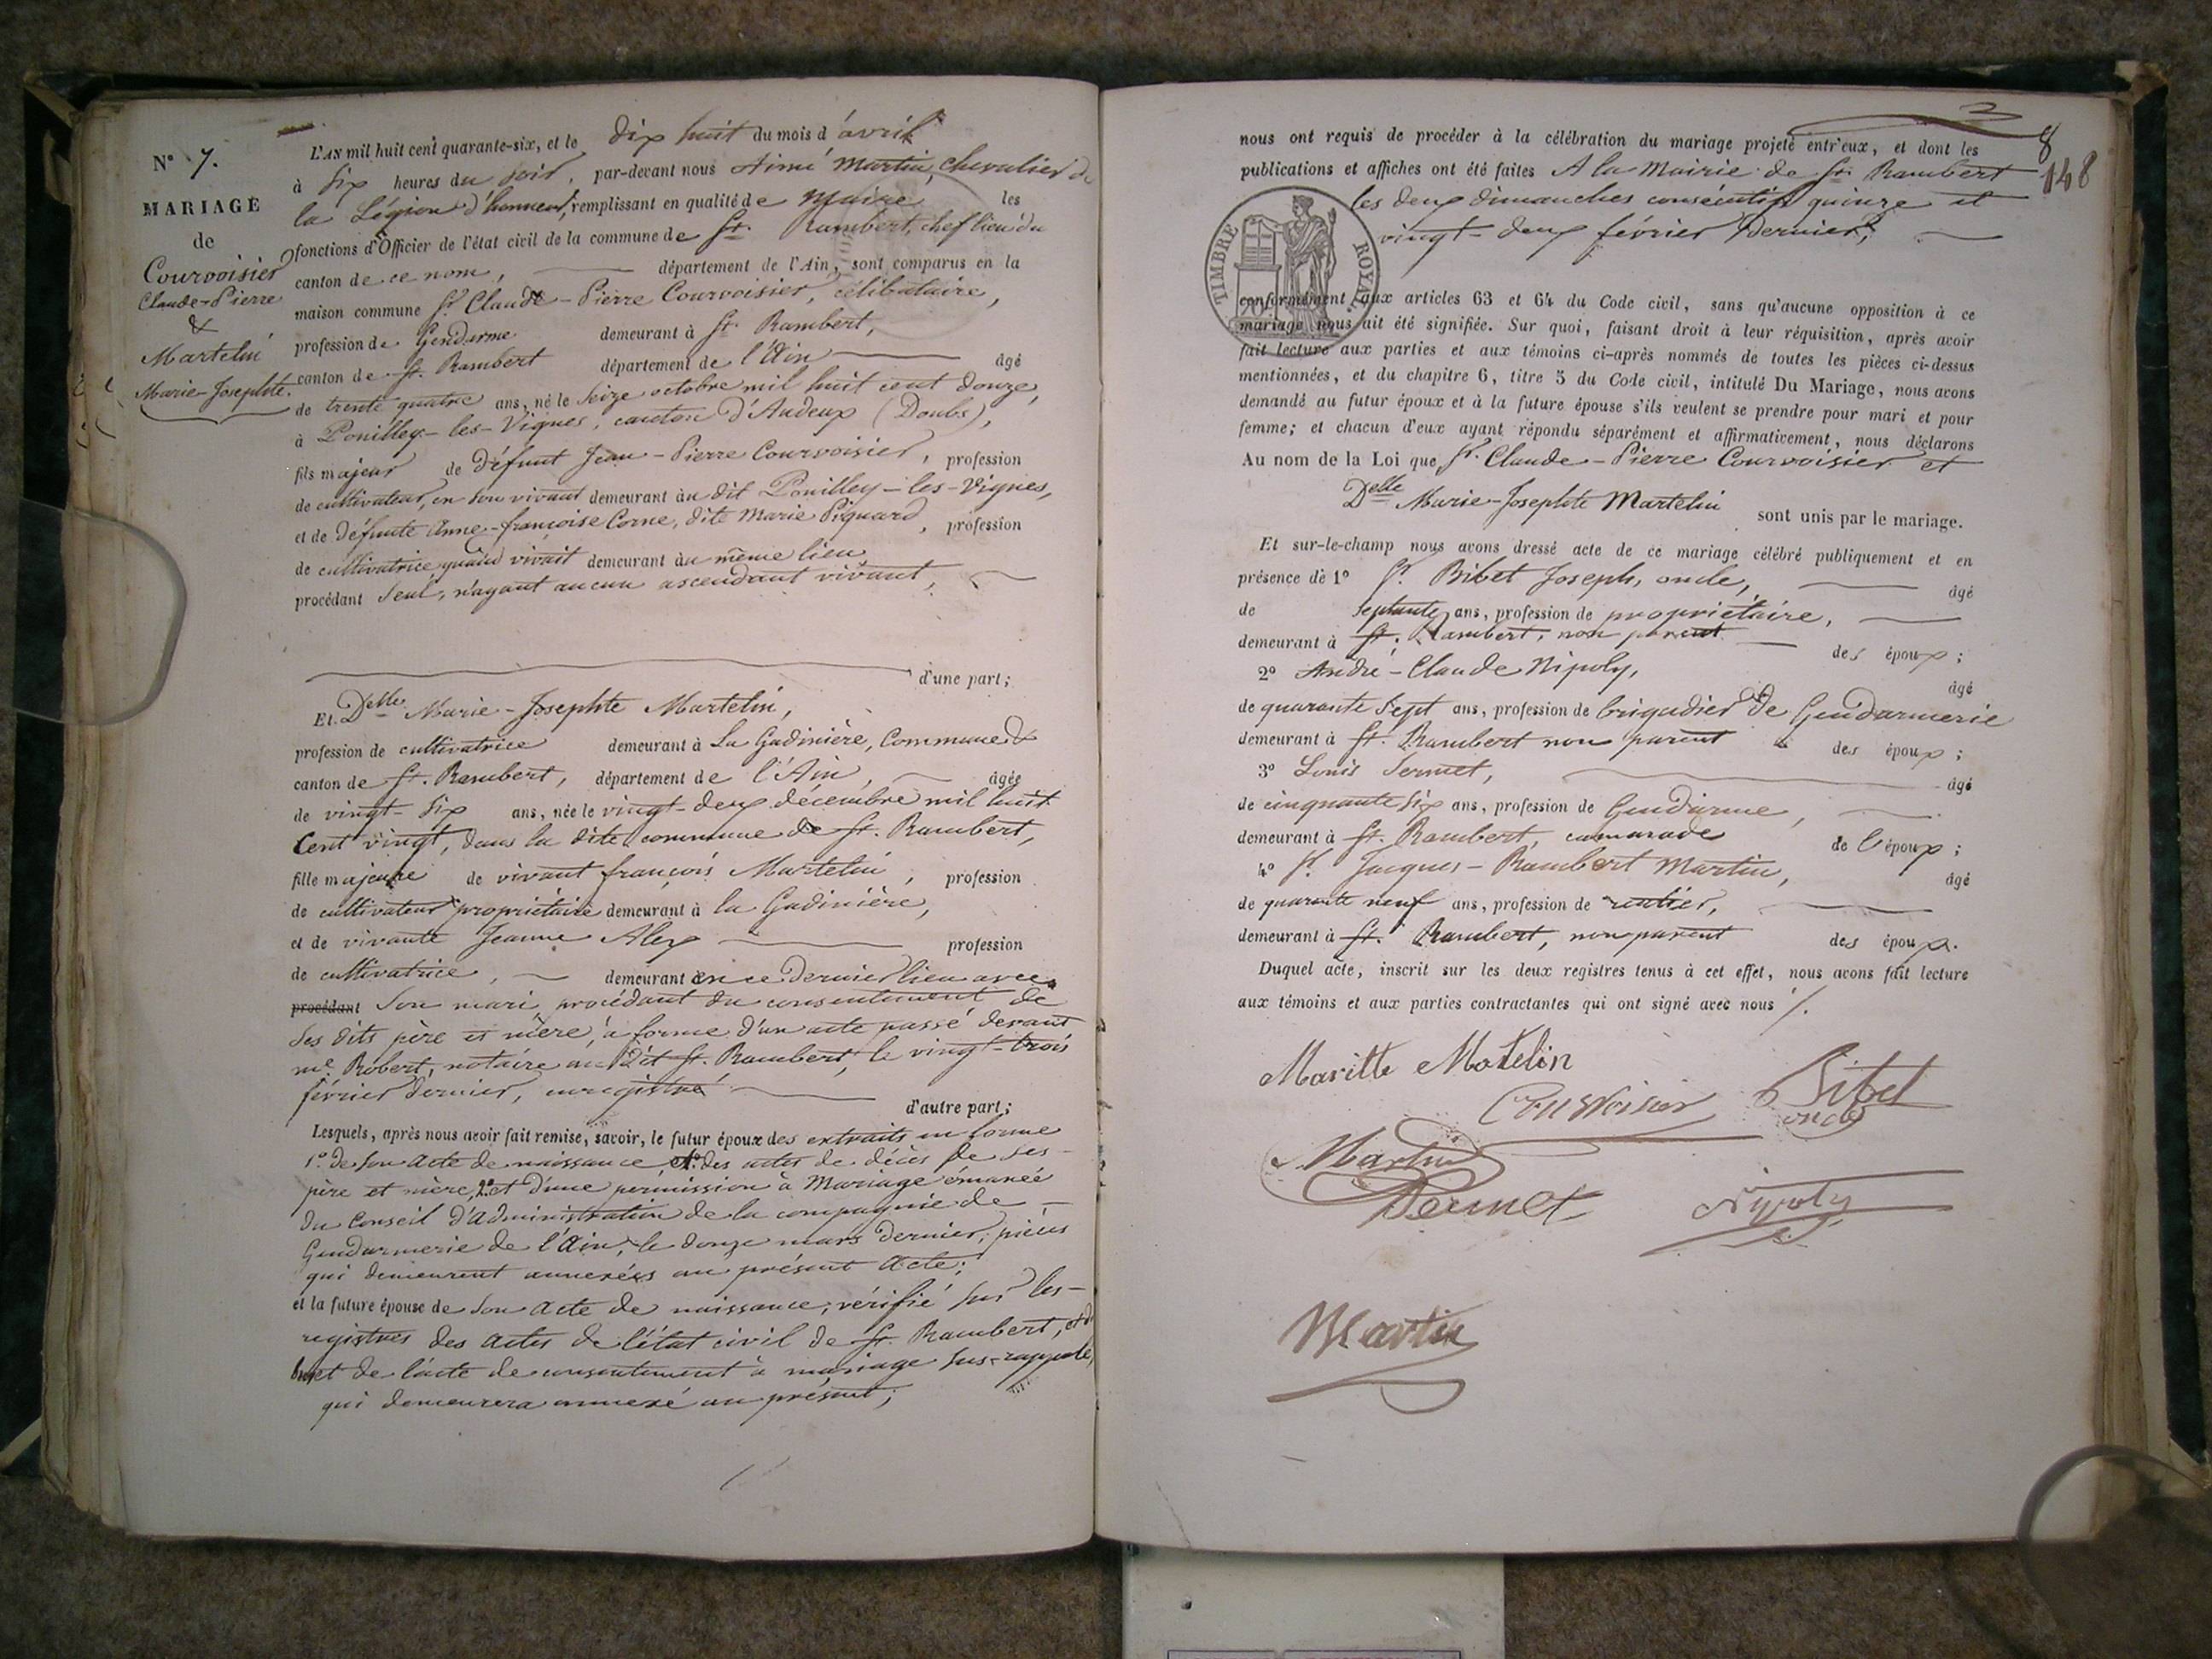 N° 7.
MARIAGE
de
Courvoisier
Claude-Pierre
&
Martelin
Marie-Josephte.
L'AN mil huit cent quarante-six, et le dix huit du mois d'avril
à six heures du soir, par-devant nous Aimé Martin, chevalier de
la Légion d'honneur, remplissant en qualité de Maire les
fonctions d'Officier de l'état civil de la commune de St. Rambert, chef lieu du
canton de ce nom, département de l'Ain, sont comparus en la
maison commune Sr. Claude-Pierre Courvoisier, célibataire,
profession de Gendarme demeurant à St. Rambert,
canton de St. Rambert département de l'Ain âgé
de trente quatre ans, né le seize octobre mil huit cent douze,
à Pouilley-les-Vignes, canton d'Audeux (Doubs),
fils majeur de défunt Jean-Pierre Courvoisier, profession
de cultivateur, en son vivant demeurant au dit Pouilley-les-Vignes,
et de défunte Anne-françoise Corne, dite Marie Piquard, profession
de cultivatrice quand vivait demeurant au même lieu
procédant seul, n'ayant aucun ascendant vivant,
d'une part;
Et Delle Marie-Josephte Martelin,
profession de cultivatrice demeurant à La Gadinière, Commune &
canton de St. Rambert, département de l'Ain, âgée
de vingt-six ans, née le vingt-deux décembre mil huit
Cent vingt, dans la dite commune de St. Rambert,
fille majeure de vivant françois Martelin, profession
de cultivateur propriétaire demeurant à la Gadinière,
et de vivante Jeanne Alex profession
de cultivatrice, demeurant en ce dernier lieu avec
procédant son mari, procédant du consentement de
ses dits père et mère, à forme d'un acte passé devant
me. Robert, notaire au dit St. Rambert, le vingt-trois
février dernier, enregistré
d'autre part;
Lesquels, après nous avoir fait remise, savoir, le futur époux des extraits en forme
1°. de son acte de naissance et des actes de décès de ses
père et mère, 2° et d'une permission à Mariage émanée
du Conseil d'administration de la compagnie de
Gendarmerie de l'Ain, le douze mars dernier, pièces
qui demeurent annexées au présent acte;
et la future épouse de son acte de naissance, vérifié sur les
registres des actes de l'état civil de St. Rambert,
et de l'acte de consentement à mariage sus-rappelé,
qui demeurera annexé au présent;
8
148
nous ont requis de procéder à la célébration du mariage projeté entr'eux, et dont les
publications et affiches ont été faites A la Mairie de St. Rambert
les deux dimanches consécutifs quinze et
vingt-deux février dernier;
TIMBRE ROYAL.
conformément aux articles 63 et 64 du Code civil, sans qu'aucune opposition à ce
mariage nous ait été signifiée. Sur quoi, faisant droit à leur réquisition, après avoir
fait lecture aux parties et aux témoins ci-après nommés de toutes les pièces ci-dessus
mentionnées, et du chapitre 6, titre 5 du Code civil, intitulé Du Mariage, nous avons
demandé au futur époux et à la future épouse s'ils veulent se prendre pour mari et pour
femme; et chacun d'eux ayant répondu séparément et affirmativement, nous déclarons
Au nom de la Loi que Sr. Claude-Pierre Courvoisier et
Delle Marie-Josephte Martelin sont unis par le mariage.
Et sur-le-champ nous avons dressé acte de ce mariage célébré publiquement et en
présence de 1° Sr. Bibet Joseph, oncle, âgé
de septante ans, profession de propriétaire,
demeurant à St. Rambert, non parent des époux;
2° André-Claude Nipoly, âgé
de quarante sept ans, profession de brigadier de Gendarmerie
demeurant à St. Rambert non parent des époux;
3° Louis Sermet, âgé
de cinquante six ans, profession de Gendarme,
demeurant à St. Rambert, camarade de l'époux;
4° Sr. Jacques-Rambert Martin, âgé
de quarante neuf ans, profession de rentier,
demeurant à St. Rambert, non parent des époux.
Duquel acte, inscrit sur les deux registres tenus à cet effet, nous avons fait lecture
aux témoins et aux parties contractantes qui ont signé avec nous /.
Maritte Matelin
Courvoisier
Bibet
oncle
Martin
Sermet
Nipoly
Martin